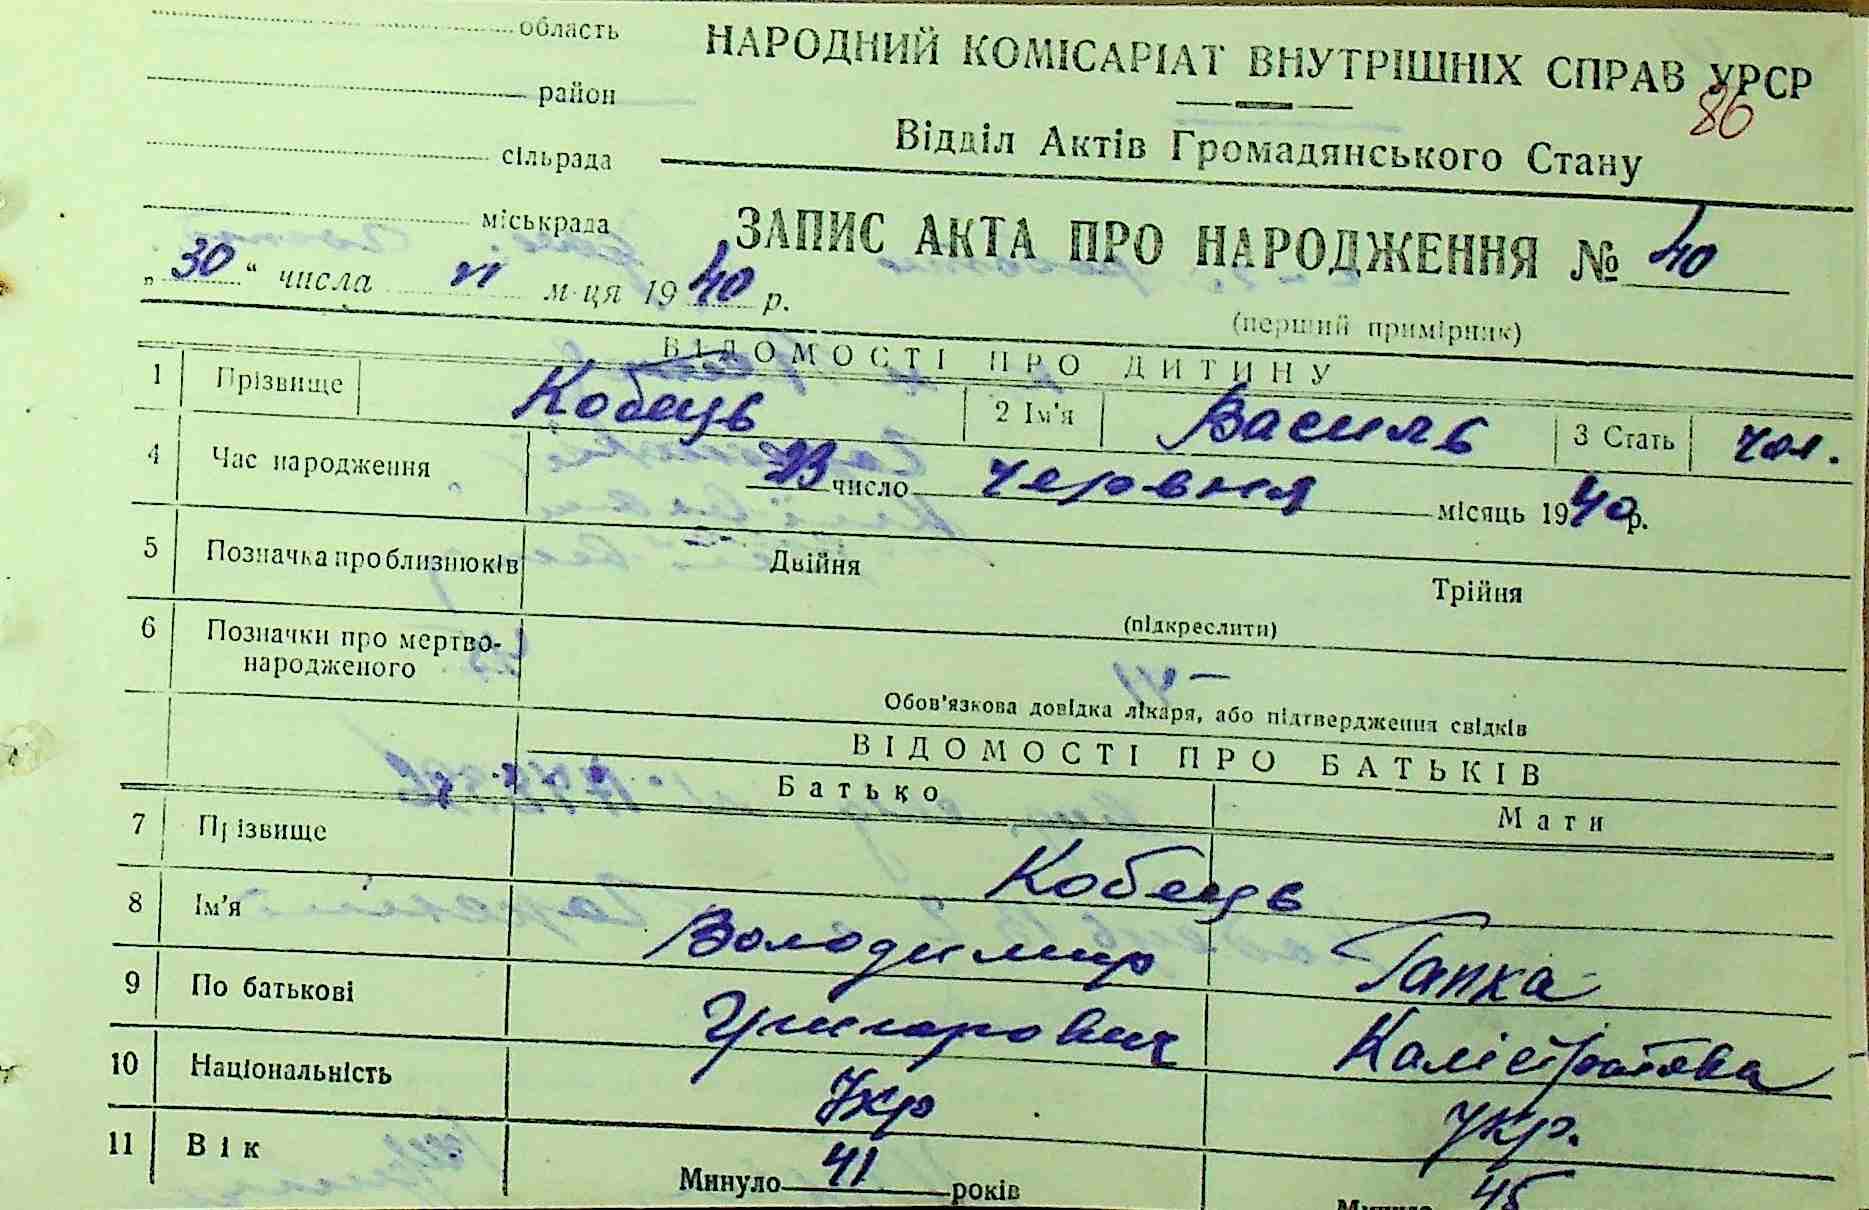 область
НАРОДНИЙ КОМІСАРІАТ ВНУТРІШНІХ СПРАВ УРСР
86
район
Відділ Актів Громадянського Стану
сільрада
міськрада
ЗАПИС АКТА ПРО НАРОДЖЕННЯ № 40
„30“ числа VI м-ця 1940 р.
(перший примірник)
ВІДОМОСТІ ПРО ДИТИНУ
1 Прізвище Кобець 2 Ім'я Василь 3 Стать чол.
4 Час народження 23 число червня місяць 1940 р.
5 Позначка про близнюків Двійня Трійня
(підкреслити)
6 Позначки про мертво-
народженого —
Обов'язкова довідка лікаря, або підтвердження свідків
ВІДОМОСТІ ПРО БАТЬКІВ
Батько Мати
7 Прізвище Кобець
8 Ім'я Володимир Гапка
9 По батькові Григорович Калістратовна
10 Національність Укр Укр.
11 Вік Минуло 41 років Минуло 45